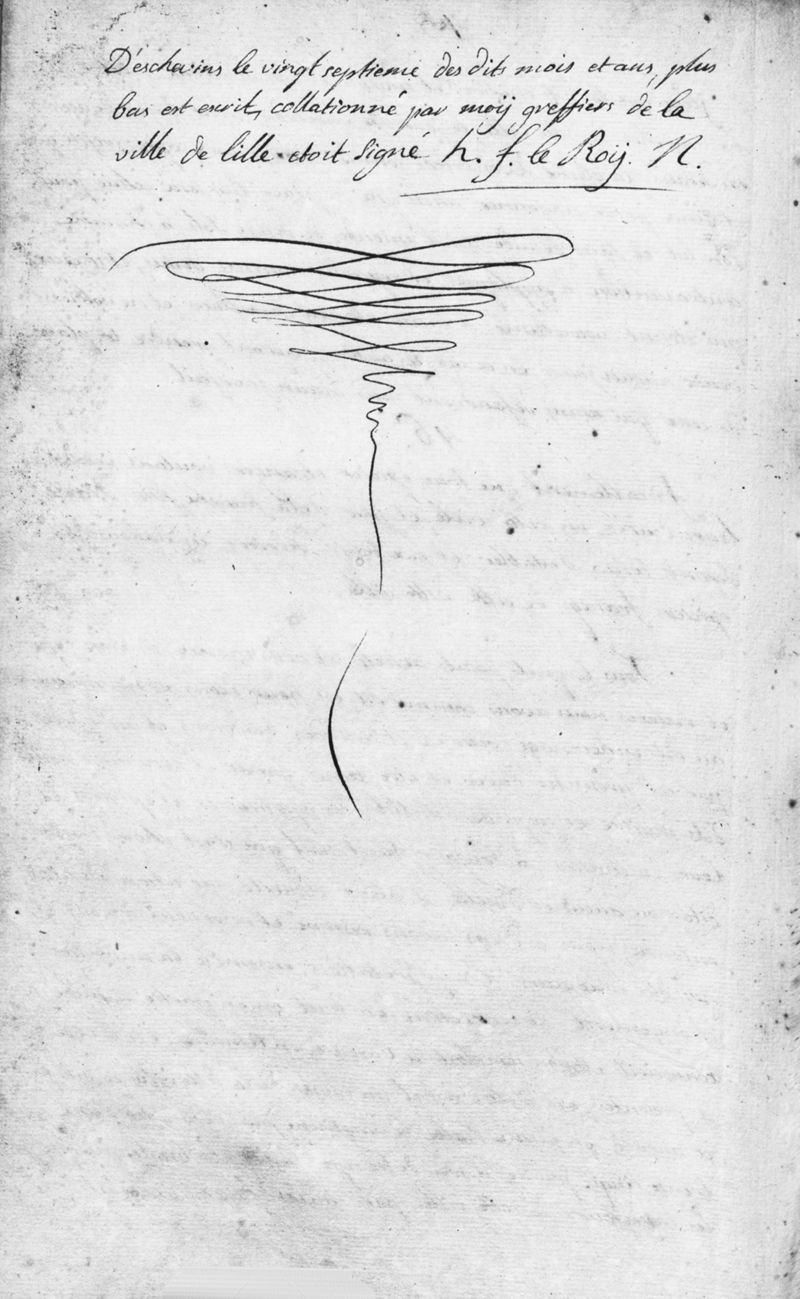 D'eschevins le vingt septieme des dits mois et ans, plus
bas est escrit, collationné par moij greffiers de la
ville de lille etoit signé h. f. le Roij. N.